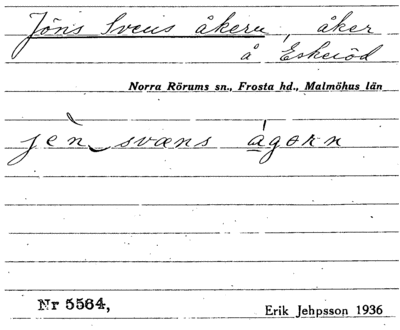 Jöns Svens åkern, åker
å Eskeröd
Norra Rörums sn., Frosta hd., Malmöhus län
jèn svæns ågorn
Nr 5564,
Erik Jehpsson 1936